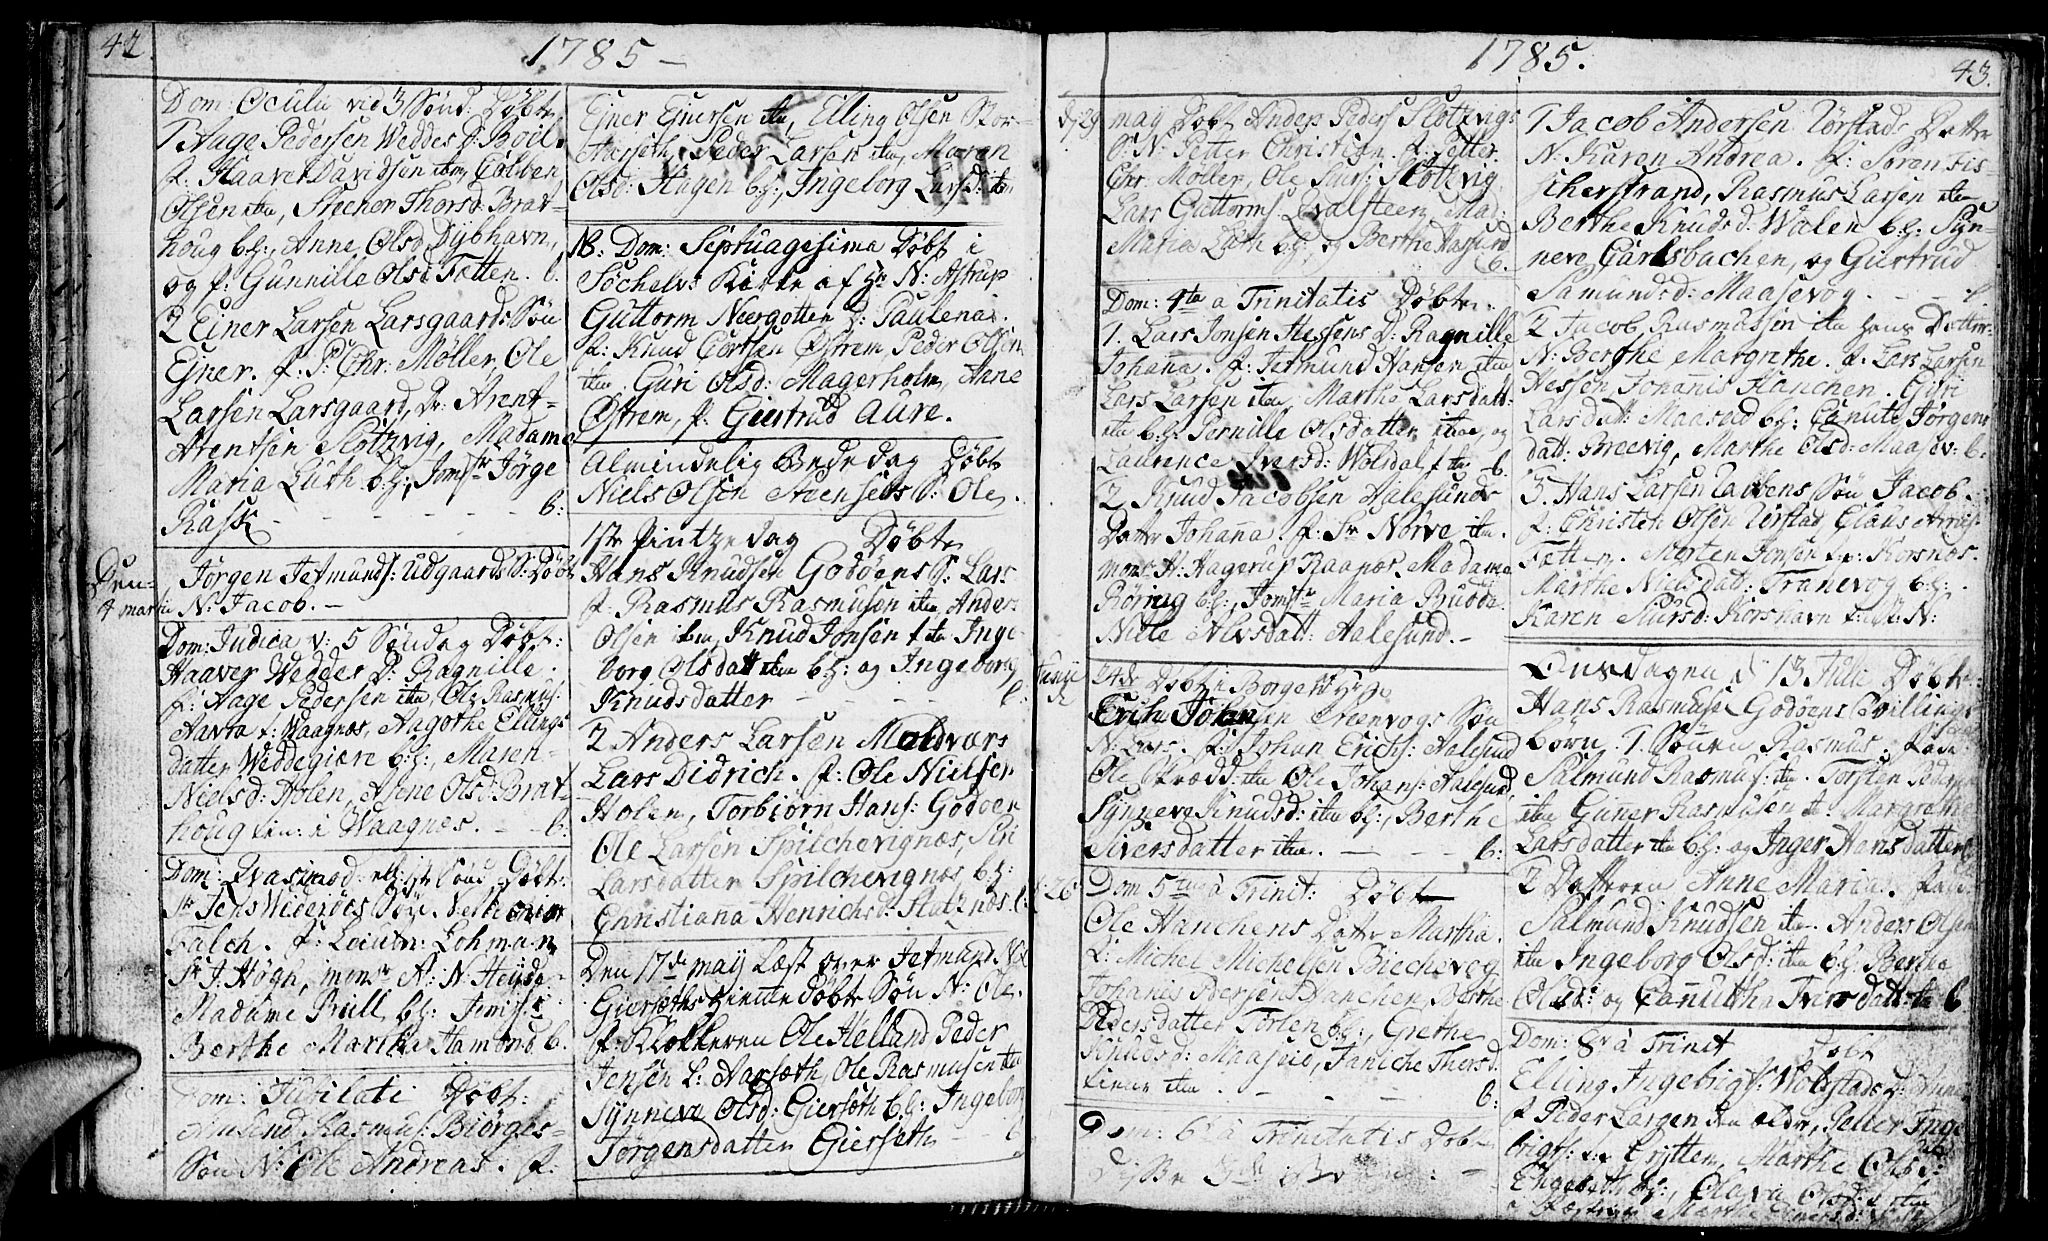 42.
1785 –
Dom: Oculi vid 3 Sönd: Döbt
1 Aage Pedersen Weddes D: Boil.
f. Haaver Davidsen itm, Colben
Olsen itm, Steenor Thorsd: Brat-
houg b:h:, Anne Olsd: Dybhavn,
og p: Gunnille Olsd: Fetten. b.
2 Einer Larsen Larsgaards Sön
Ejner. f: P: Chr: Möller, Ole
Larsen Larsgaard, Arent-
Arentsen Slotzvig, Madame
Maria Luth b:h:, Jomfr Jörge
Rask - - - - - b:
Den
4 martii
Jörgen Jetmunds: Udgaards S: Döbt
N: Jacob. –
Dom: Judica v: 5 Söndag Döbt:
Haaver Weddes D: Ragnille.
f: Aage Pedersen itm, Ole Rasmus:
Aavra f: Waagnæs, Aagothe Ellings
datter Weddegiære b:h:, Maren
Nielsd: Holen, Anne Olsd: Brat-
houg tien: i Waagnæs. - - b:
Dom: Qvasimod: 1st Sönd Döbt.
Sr Jens Widerœs Sön
Falch. f: Lohman
Sr J: Högh, monsr A: N: Heyde
Madame Brill b:h: Jomfr:
Berthe Martha Hamond b.
Dom: Jubilate Döbt:
Amund Rasmus: Biörges-
Sön N: Ole Andreas. f:
Ejner Ejnersen itm, Elling Olsen Kor-
Aarseth, Peder Larsen itm, Maren
Olsd: Hagen b:h:, Ingeborg Larsd: itm
NB: Dom: Septuagesima Döbt i
Söchelvs Kirke af Hr N: Astrup
Guttorm Neergotten D: Paulena.
f: Knud Cortsen Östrem Peder Olsen
itm. Guri Olsd: Magerholm, Anne
Östrem, p: Giertrud Aure.
Almindelig Bededag Döbt
Niels Olsen Steensets S: Ole.
1ste Pintzedag Döbt
Hans Knudsen Godöens S: Lars
f: Rasmus Rasmusen itm Anders
Olsen itm, Knud Jonsen itm Inge
borg Olsdatt itm b:h: og Ingeborg
Knudsdatter - - - - b:
2 Anders Larsen Moldværs
Lars Didrich. f: Ole Nielsen
Holen, Torbiörn Hans: Godöen
Ole Larsen Spilchevignæs, Siri
Larsdatter Spilchevignæs b:h:
Christiana Henrichsd: Slatznæs b:
Den 17de maij Læst over Jetmund
Giersæths hiemme döbte Sön N: Ole.
f. Klokkeren Ole Helland Peder
Jensen L: Aarsæth, Ole Rasmusen itm
Synneve Olsd: Giersöth b:h: Ingeborg
Jörgensdatter Giersöth - - b
1785.
43.
d: 29
maij Döbt Anders Peders Slotzvigs
S: N: Petter Christian. f: Petter
Chr: Möller, Ole Siur: Slottvig
Lars Guttorms Qvalsteen, Mad:
Maria Luth b:h: og Berthe
b.
Dom: 4te a Trinitatis Döbt.
1. Lars Jonsen Hessens D: Ragnille
Johana. f: Jetmund Hansen itm
Lars Larsen itm, Marthe Larsdatt:
itm b:h: Pernille Olsdatter itm, og
Laurence Iversd: Wolsdal itm b.
2 Knud Jacobsen Aalesunds
Datter Johana. f: Sr Nörve itm.
monsr H: Hagerup Raanæs, Madame
Rönnug b:h:, Jomfr Maria Budde
Nille Alvsdatt: Aalesund. –
Junii
24de Döbt i Borgend
Erich Johansen Steenvogs Sön
N: Lars. f: Johan Erichs: Aalesund
Ole Skrædd: itm Ole Johans: Aalesund,
Synneve Knudsd: itm b:h:, Berthe
Siversdatter itm. - - - b:
26
Dom 5te a Trinit: Döbt
Ole Hanchens Datter Martha.
f: Michel Michelsen Biechevog
Johanis Pedersen Hanchen, Berthe
Pedersdatter Torlen b:h:, Grethe
Knudsd: Maaseid, Faniche Thorsd:
itm. - - - - b:
Dom: 6te a Trinitatis Döbt
1 Jacob Andersen Törstads Datter
N: Karen Andrea. f: Soren Fis-
scherstrand, Rasmus Larsen itm
Berthe Knudsd. Walen b:h: Syn-
neve Carlsbachen, og Giertrud
Samundsd: Maasevog. - - f.
2 Jacob Rasmussen itm hans Datter
N: Berthe Margrethe. f: Lars Larsen
Hessen, Johanis Hanchen. Guri
Larsdatt: Maaseid b:h: Canute Jörgens
datt: Breevig, Marthe Olsd: Maasev: b.
3. Hans Larsen Tarbens Sön Jacob.
f: Christen Olsen Törstad, Claus
Fetten. Morten Jonsen f: Korsnæs.
Marthe Nielsdatt: Tranevog b:h:.
Karen Siursd: Korshavn f: N:
Onsdagen d: 13 Julii Döbt:
Hans Rasmuse Godöens Tvillings
börn. 1 Sönen Rasmus. fad:
Salmund Rasmus: itm. Torsten Peders
itm Gunner Rasmusen itm Margrethe
Larsdatter itm b:h: og Inger Hansdatter
2 Datteren Anne Maria. fad:
Salmund Knudsen itm. Anders Olsen
itm Ingeborg Olsd: itm b:h: Berthe
Olsd: og Canutha Iversdatt: itm b
Dom: 8de a Trinit Döbt
Elling Ingebrigt: Wolstads D: Anne
f Peder Larsen itm ældr, Petter Inge
brigt: Marthe Olsd:
b:h:, Olava Olsd: itm